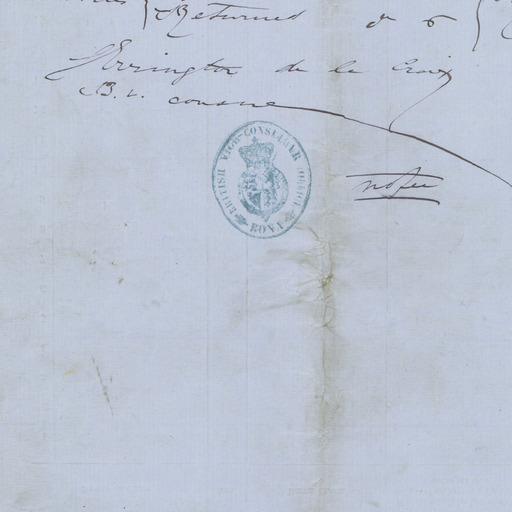 Returned do 6
Errington de la Croix
B. V. Consul
BRITISH VICE-CONSULAR OFFICE
BONA